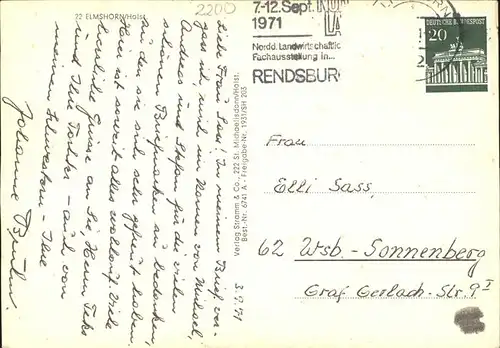 22 ELMSHORN/Holst.
2200
7-12. Sept.
1971
Nordd. Landwirtschaftlic
Fachausstellung in...
RENDSBUR
DEUTSCHE BUNDESPOST
20
Verlag Stramm & Co., 222 St. Michaelisdonn/Holst.
Best.-Nr. 6741 A - Freigabe-Nr. 1931/SH 203
3.9.71
Liebe Frau Sass! In meinem Brief ver-
gass ich, mich im Namen von Michael,
Andreas und Stefan für die vielen
schönen Briefmarken zu bedanken,
zu den sie sich sehr gefreut haben.
Hier ist soweit alles wohlauf. Viele
herzliche Grüsse an Sie, Herrn Sass
und Ihre Tochter – auch von
meinen Schwestern – Ihre
Johanne
Frau
Elli Sass,
62 Wsb.-Sonnenberg
Graf Gerlach-Str. 9 I